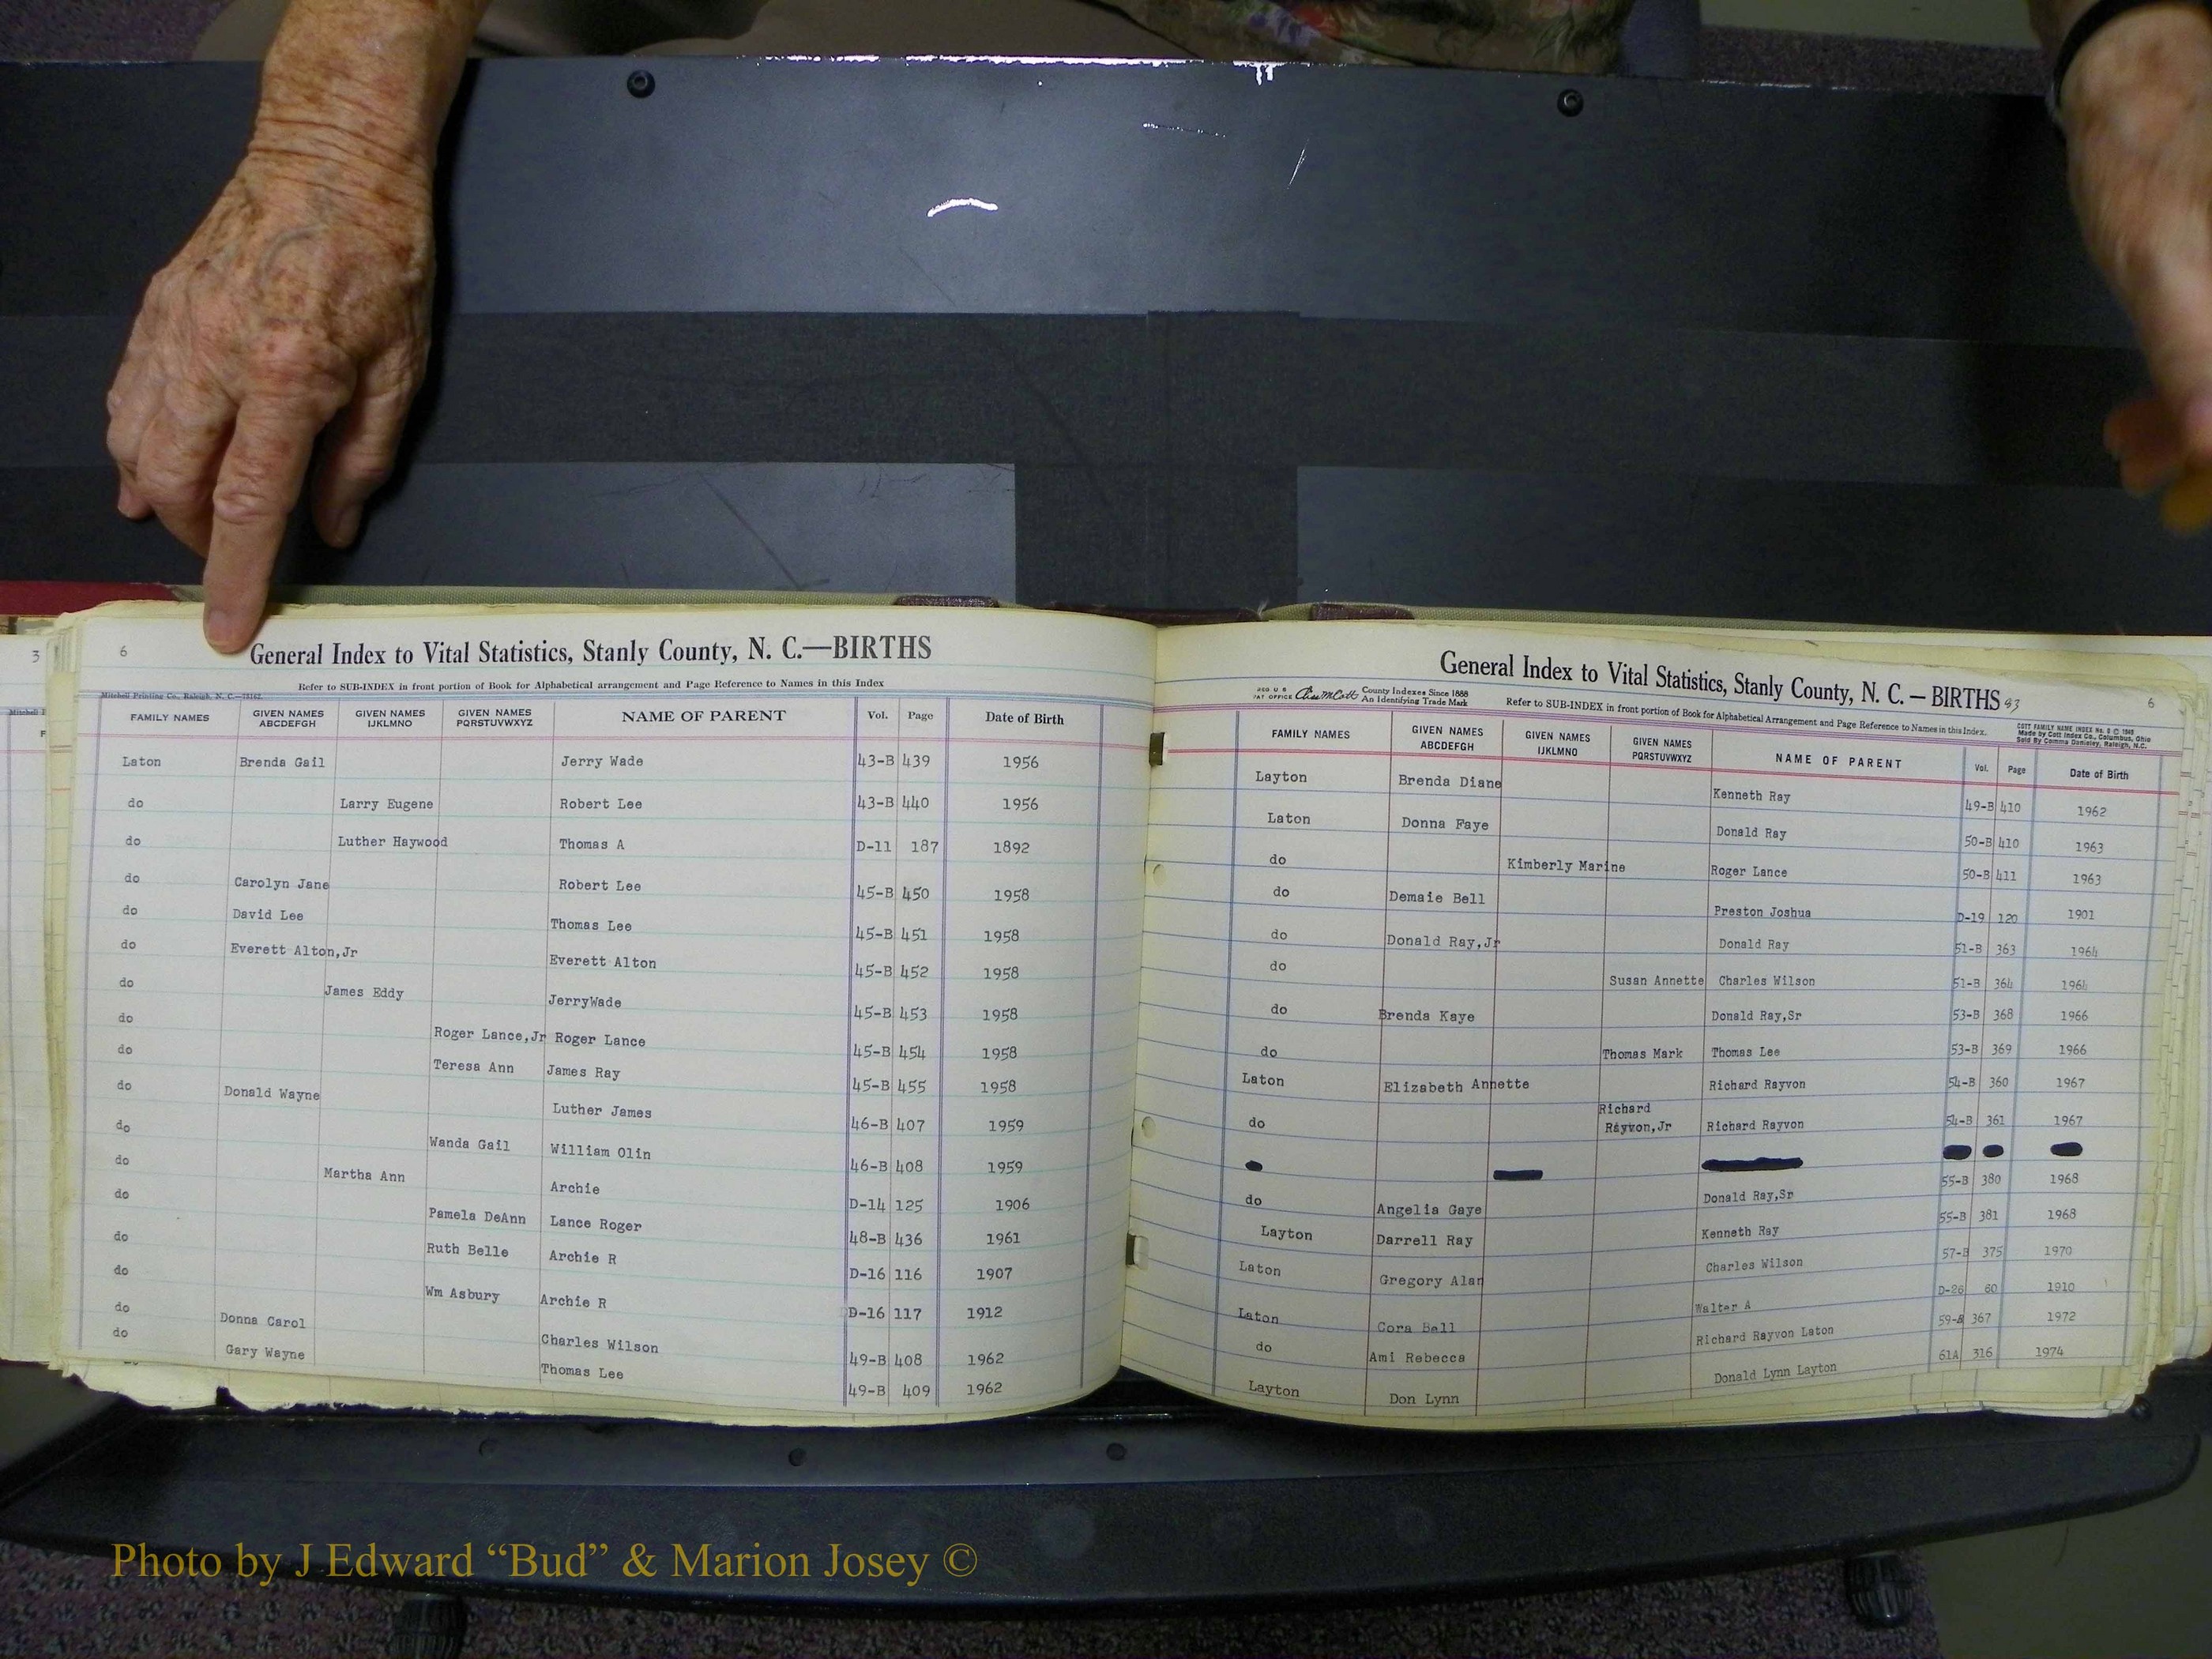 3
6
General Index to Vital Statistics, Stanly County, N. C.—BIRTHS
Refer to SUB-INDEX in front portion of Book for Alphabetical arrangement and Page Reference to Names in this Index
Mitchell Printing Co., Raleigh, N. C.
FAMILY NAMES GIVEN NAMES ABCDEFGH GIVEN NAMES IJKLMNO GIVEN NAMES PQRSTUVWXYZ NAME OF PARENT Vol. Page Date of Birth
Laton Brenda Gail Jerry Wade 43-B 439 1956
do Larry Eugene Robert Lee 43-B 440 1956
do Luther Haywood Thomas A D-11 187 1892
do Carolyn Jane Robert Lee 45-B 450 1958
do David Lee Thomas Lee 45-B 451 1958
do Everett Alton,Jr Everett Alton 45-B 452 1958
do James Eddy JerryWade 45-B 453 1958
do Roger Lance,Jr Roger Lance 45-B 454 1958
do Teresa Ann James Ray 45-B 455 1958
do Donald Wayne Luther James 46-B 407 1959
do Wanda Gail William Olin 46-B 408 1959
do Martha Ann Archie D-14 125 1906
do Pamela DeAnn Lance Roger 48-B 436 1961
do Ruth Belle Archie R D-16 116 1907
do Wm Asbury Archie R D-16 117 1912
do Donna Carol Charles Wilson 49-B 408 1962
do Gary Wayne Thomas Lee 49-B 409 1962
General Index to Vital Statistics, Stanly County, N. C. — BIRTHS 93
6
REG U S PAT OFFICE County Indexes Since 1888 An Identifying Trade Mark
Refer to SUB-INDEX in front portion of Book for Alphabetical Arrangement and Page Reference to Names in this Index.
COTT FAMILY NAME INDEX
Made by Cott Index Co., Columbus, Ohio
Sold By Raleigh, N.C.
FAMILY NAMES GIVEN NAMES ABCDEFGH GIVEN NAMES IJKLMNO GIVEN NAMES PQRSTUVWXYZ NAME OF PARENT Vol. Page Date of Birth
Layton Brenda Diane Kenneth Ray 49-B 410 1962
Laton Donna Faye Donald Ray 50-B 410 1963
do Kimberly Marine Roger Lance 50-B 411 1963
do Demaie Bell Preston Joshua D-19 120 1901
do Donald Ray,Jr Donald Ray 51-B 363 1964
do Susan Annette Charles Wilson 51-B 364 1964
do Brenda Kaye Donald Ray,Sr 53-B 368 1966
do Thomas Mark Thomas Lee 53-B 369 1966
Laton Elizabeth Annette Richard Rayvon 54-B 360 1967
do Richard Rayvon,Jr Richard Rayvon 54-B 361 1967
do Angelia Gaye Donald Ray,Sr 55-B 380 1968
Layton Darrell Ray Kenneth Ray 55-B 381 1968
Laton Gregory Alan Charles Wilson 57-B 375 1970
Laton Cora Bell Walter A D-26 60 1910
do Ami Rebecca Richard Rayvon Laton 59-A 367 1972
Layton Don Lynn Donald Lynn Layton 61A 316 1974
Photo by J Edward “Bud” & Marion Josey ©